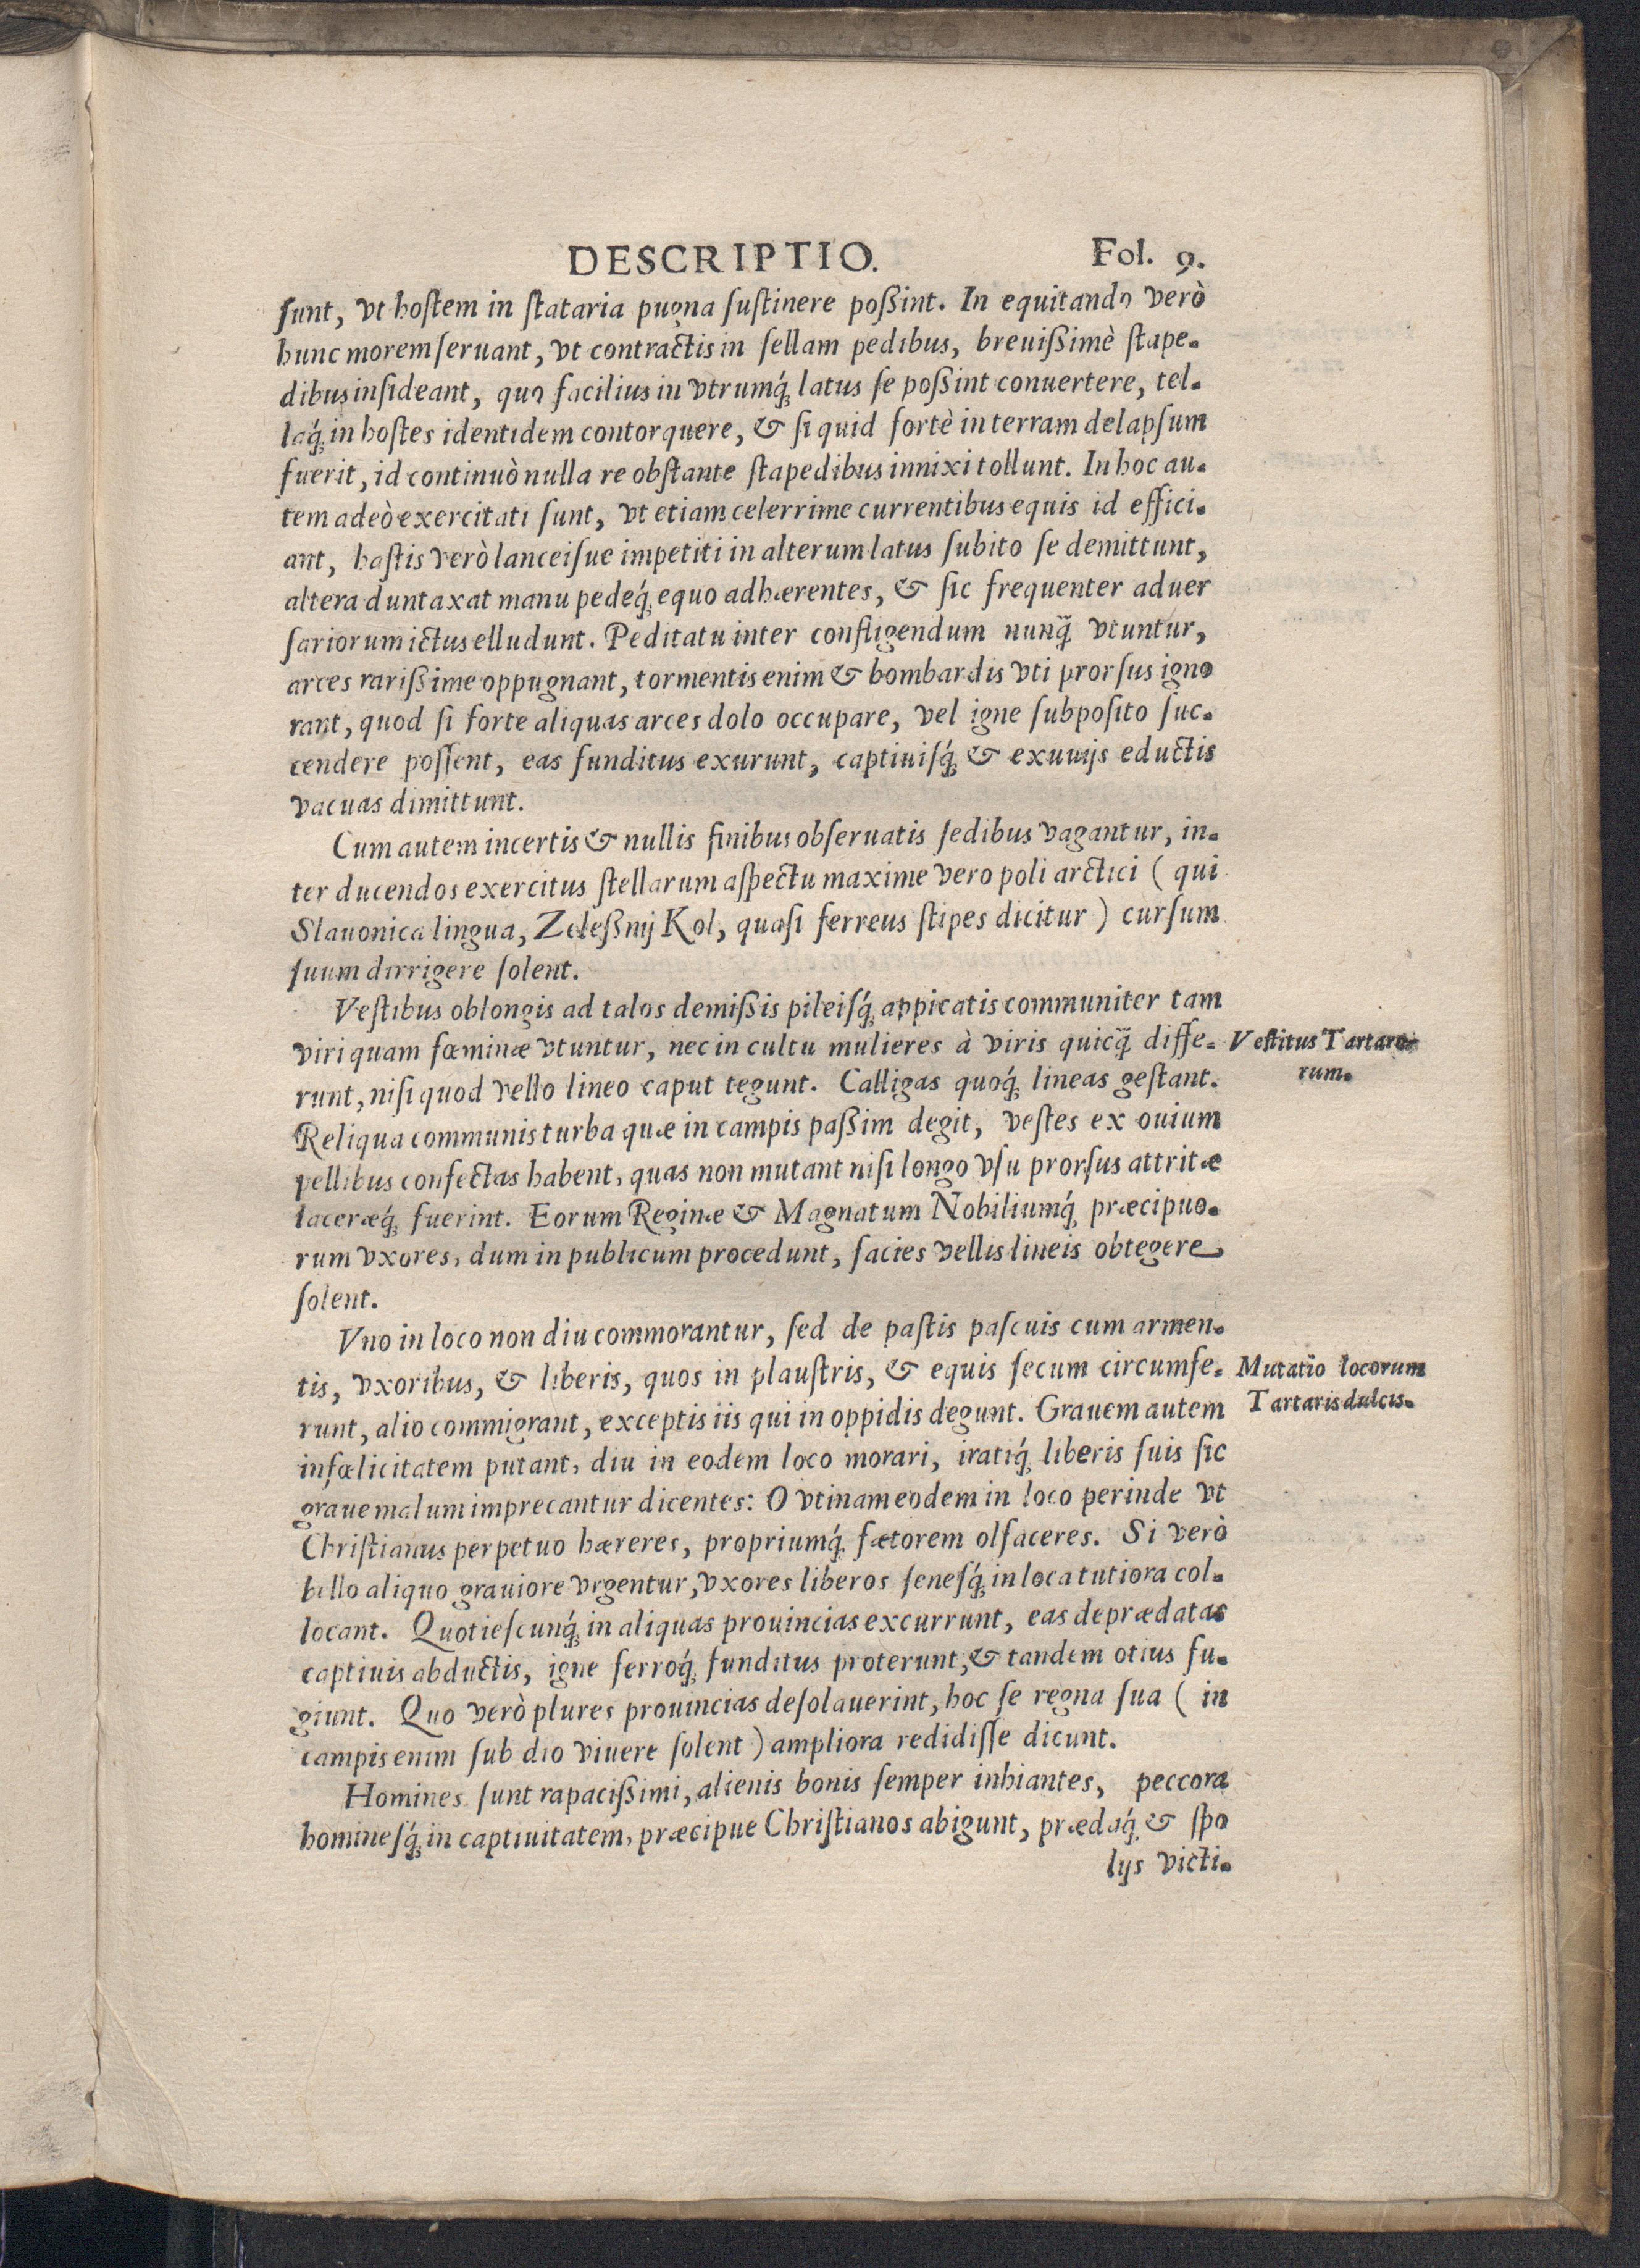 DESCRIPTIO. Fol. 9.
ſunt, vt hoſtem in ſtataria pugna ſuſtinere poßint. In equitando verò
hunc morem ſeruant, vt contractis in ſellam pedibus, breuißimè ſtape-
dibus inſideant, quo facilius in vtrumq́; latus ſe poßint conuertere, tel-
laq́; in hoſtes identidem contorquere, & ſi quid fortè in terram delapſum
fuerit, id continuò nulla re obſtante ſtapedibus innixi tollunt. In hoc au-
tem adeò exercitati ſunt, vt etiam celerrime currentibus equis id effici-
ant, haſtis verò lanceiſue impetiti in alterum latus ſubito ſe demittunt,
altera duntaxat manu pedeq́; equo adhærentes, & ſic frequenter aduer
ſariorum ictus elludunt. Peditatu inter confligendum nunq̃ vtuntur,
arces rarißime oppugnant, tormentis enim & bombardis vti prorſus igno
rant, quod ſi forte aliquas arces dolo occupare, vel igne ſubpoſito ſuc-
cendere poſſent, eas funditus exurunt, captiuiſq́; & exuuijs eductis
vacuas dimittunt.
Cum autem incertis & nullis finibus obſeruatis ſedibus vagantur, in-
ter ducendos exercitus ſtellarum aſpectu maxime vero poli arctici ( qui
Slauonica lingua, Zeleßnij Kol, quaſi ferreus ſtipes dicitur ) curſum
ſuum dirrigere ſolent.
Veſtibus oblongis ad talos demißis pileiſq́; appicatis communiter tam
viri quam fœminæ vtuntur, nec in cultu mulieres à viris quicq̃ diffe-
Veſtitus Tartaro-
rum.
runt, niſi quod vello lineo caput tegunt. Calligas quoq́; lineas geſtant.
Reliqua communis turba quæ in campis paßim degit, veſtes ex ouium
pellibus confectas habent, quas non mutant niſi longo vſu prorſus attritæ
laceræq́; fuerint. Eorum Reginæ & Magnatum Nobiliumq́; præcipuo-
rum vxores, dum in publicum procedunt, facies vellis lineis obtegere
ſolent.
Vno in loco non diu commorantur, ſed de paſtis paſcuis cum armen-
tis, vxoribus, & liberis, quos in plauſtris, & equis ſecum circumfe-
Mutatio locorum
Tartaris dulcis.
runt, alio commigrant, exceptis iis qui in oppidis degunt. Grauem autem
infœlicitatem putant, diu in eodem loco morari, iratiq́; liberis ſuis ſic
graue malum imprecantur dicentes: O vtinam eodem in loco perinde vt
Chriſtianus perpetuo hæreres, propriumq́; fætorem olfaceres. Si verò
bello aliquo grauiore vrgentur, vxores liberos ſeneſq́; in loca tutiora col-
locant. Quotieſcunq́; in aliquas prouincias excurrunt, eas deprædatas
captiuis abductis, igne ferroq́; funditus proterunt, & tandem otius fu-
giunt. Quo verò plures prouincias deſolauerint, hoc ſe regna ſua ( in
campis enim ſub dio viuere ſolent ) ampliora redidiſſe dicunt.
Homines ſunt rapacißimi, alienis bonis ſemper inhiantes, peccora
homineſq́; in captiuitatem, præcipue Chriſtianos abigunt, prædaq́; & ſpo
lijs victi-